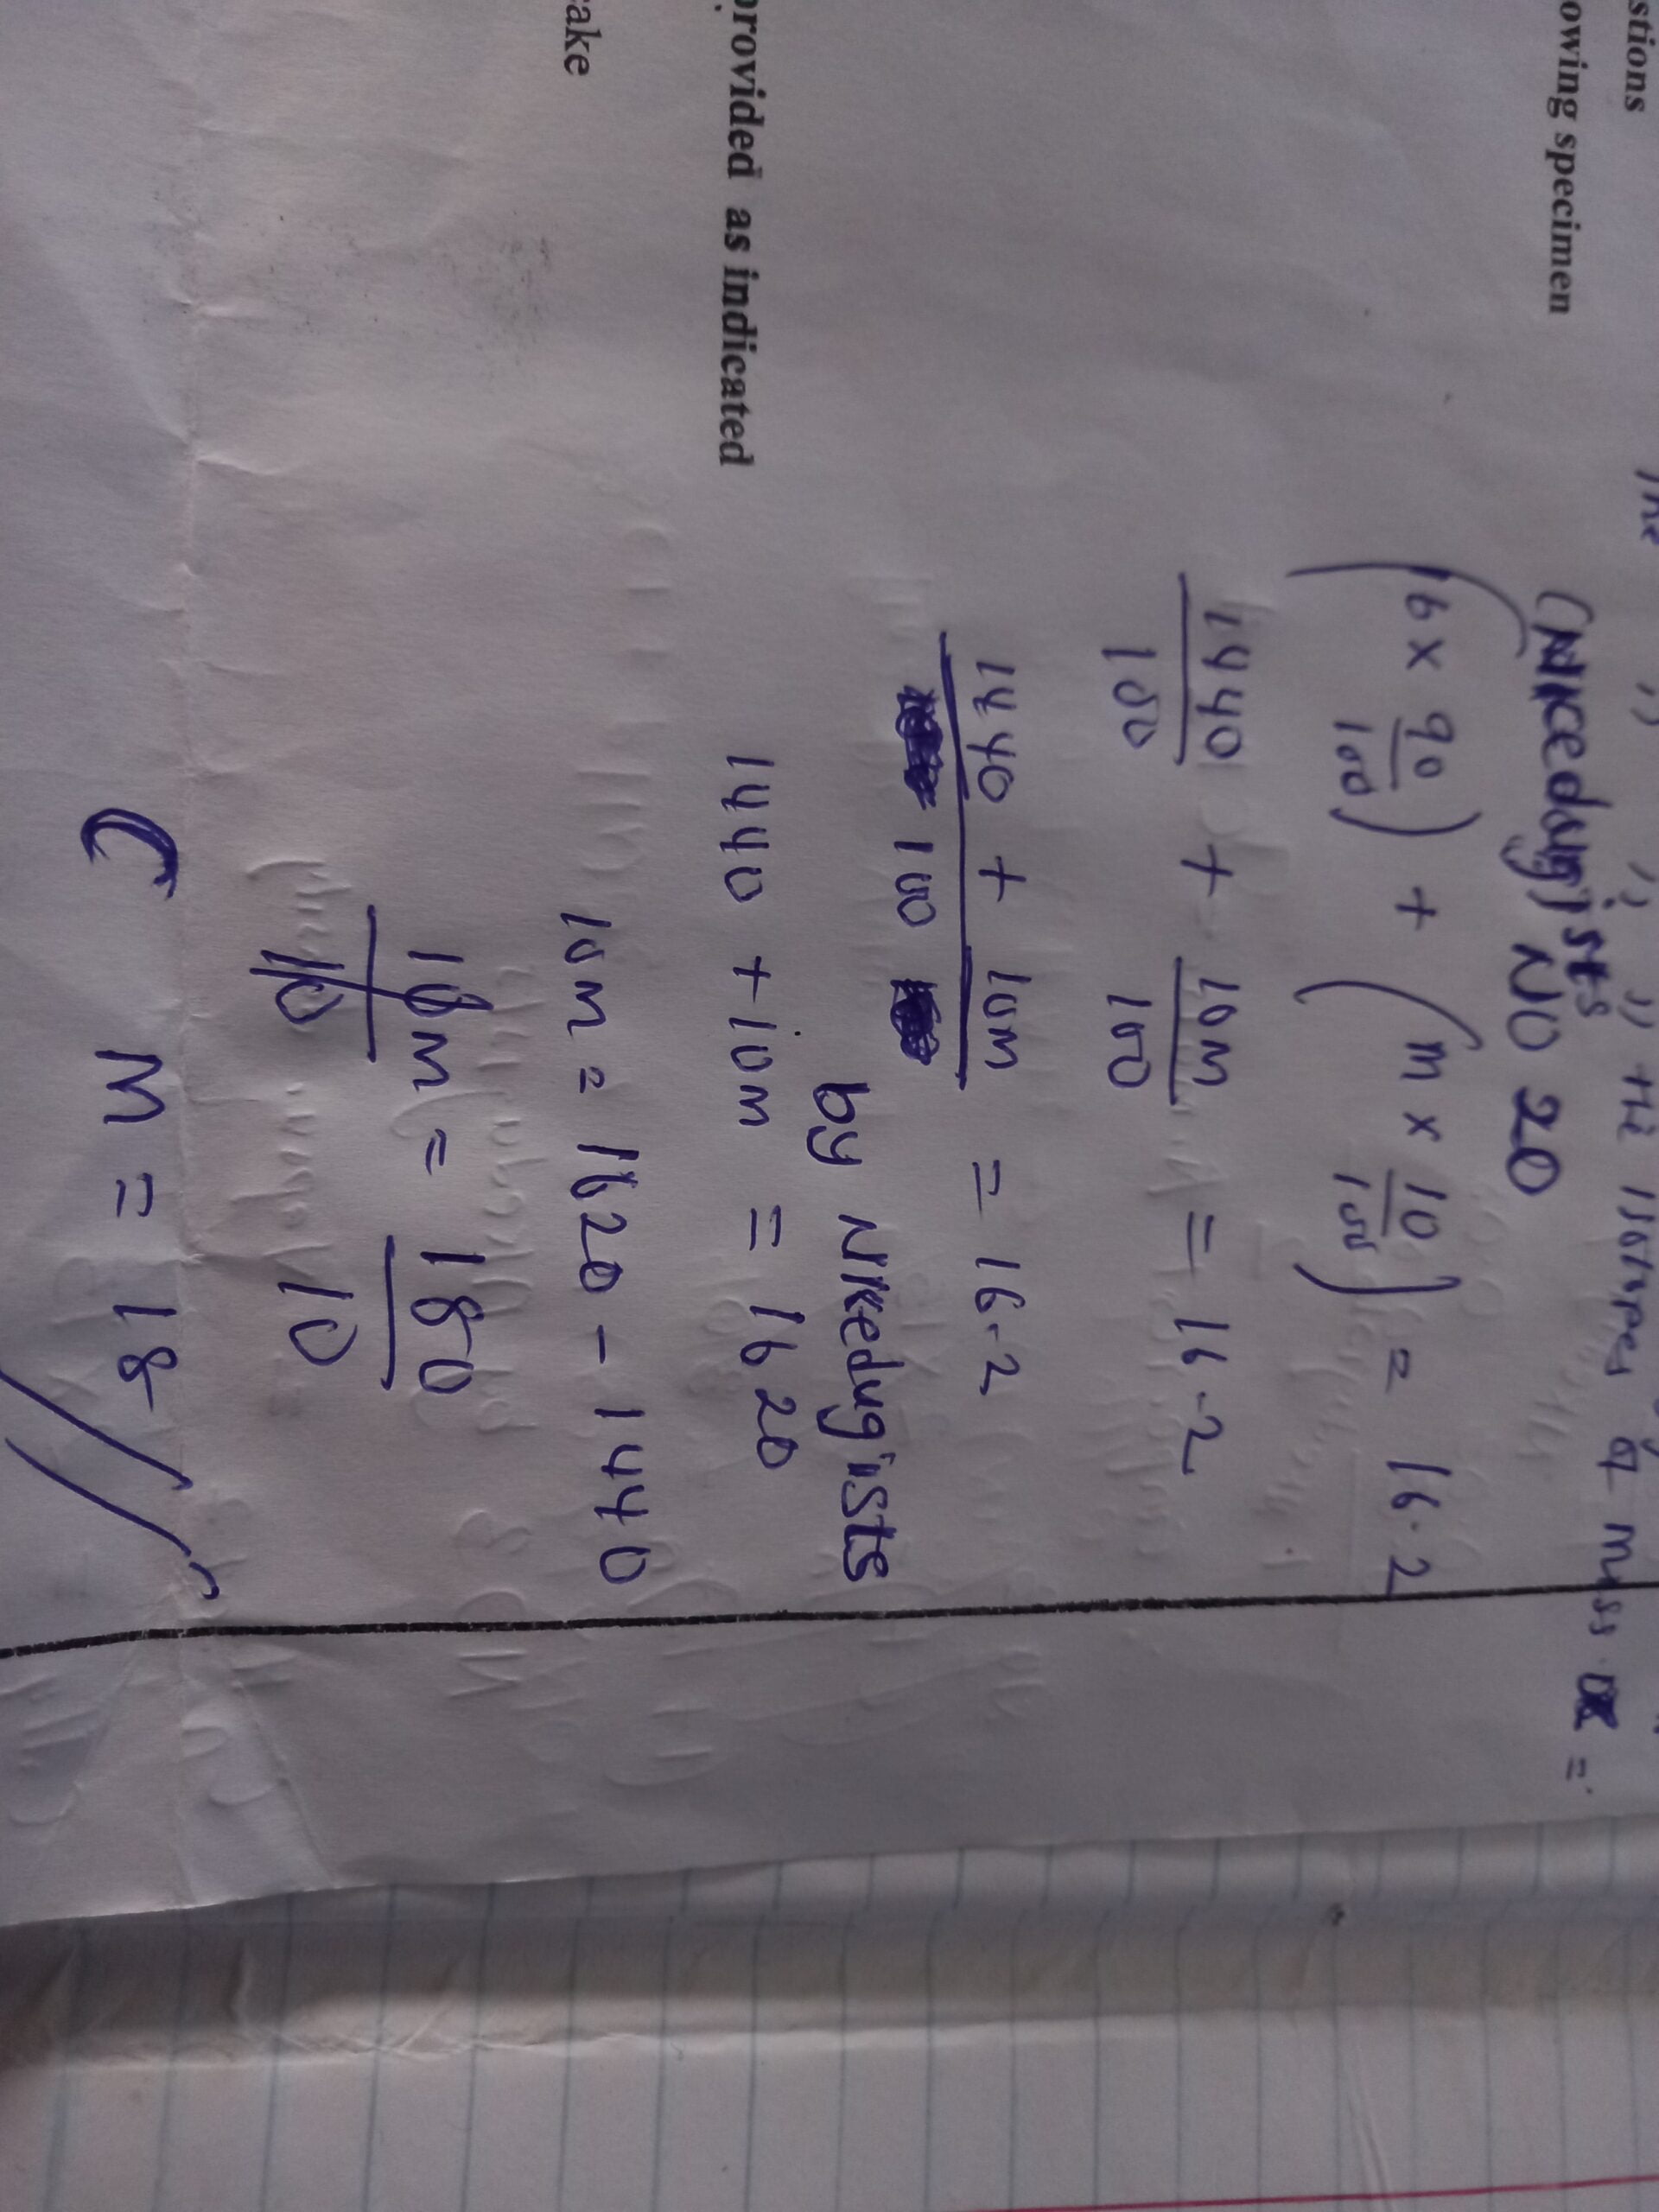 stions
owing specimen
provided as indicated
ake
The
the isotopes of mass =
(Nkedugists NO 20
(16 x 90/100) + (m x 10/100) = 16.2
1440/100 + 10m/100 = 16.2
1440 + 10m / 100 = 16.2
by Nkedugists
1440 + 10m = 1620
10m = 1620 - 1440
10m/10 = 180/10
C m = 18